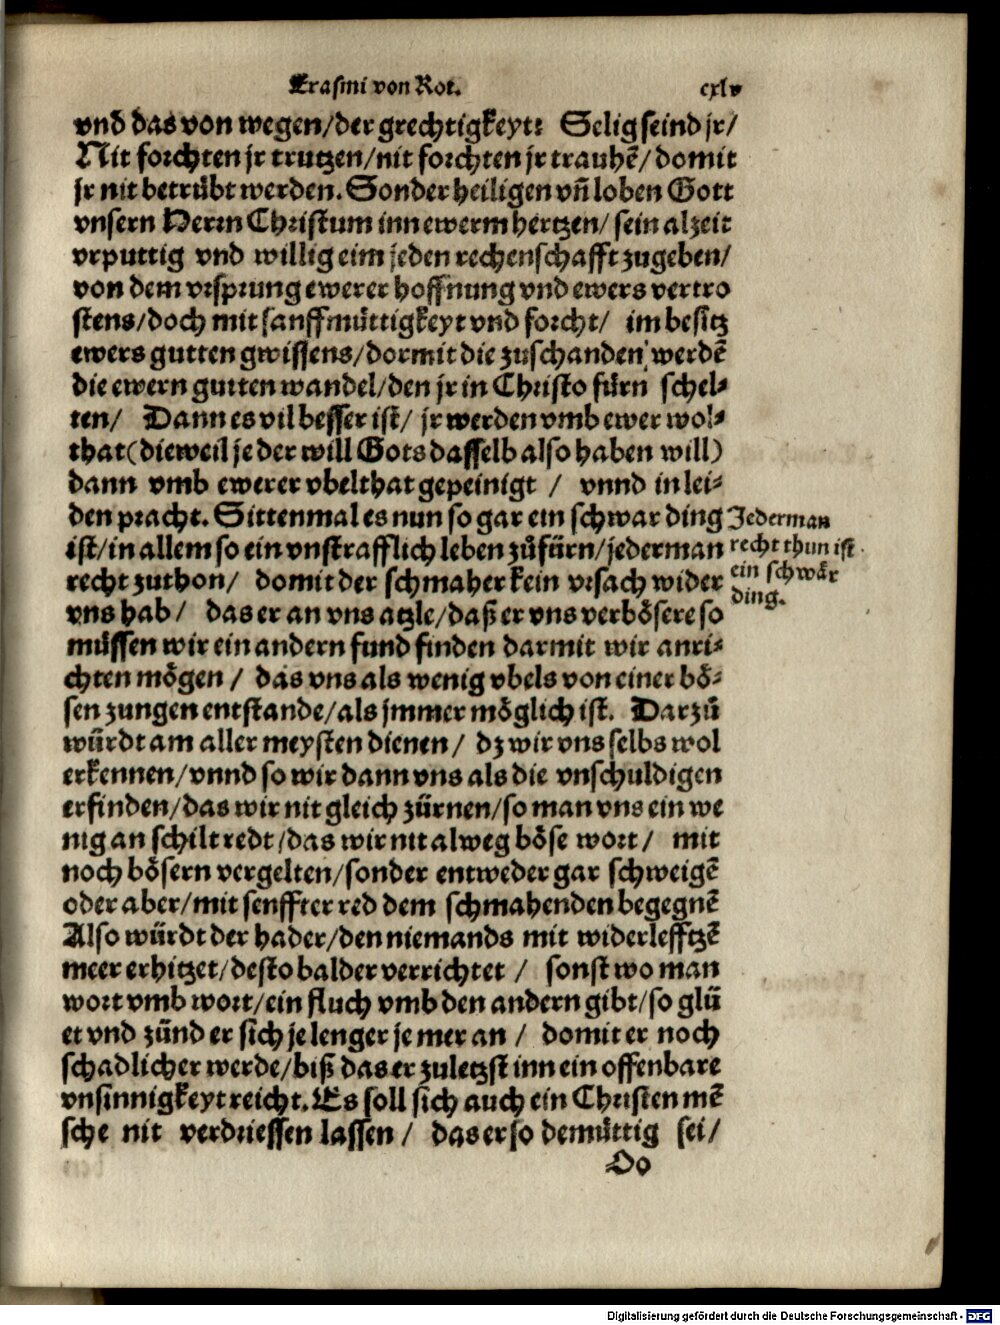 Erasmi von Rot.
cxlv
vnd das von wegen/der grechtigkeyt: Selig seind jr/
Nit forchten jr trutzen/nit forchten jr trauhē/domit
jr nit betrübt werden. Sonder heiligen vñ loben Gott
vnsern Herrn Christum inn ewerm hertzen/sein alzeit
vrputtig vnd willig eim jeden rechenschafft zugeben/
von dem vrsprung ewerer hoffnung vnd ewers vertro
stens/doch mit sanffmüttigkeyt vnd forcht/ im besitz
ewers gutten gwissens/dormit die zuschanden werdē
die ewern gutten wandel/den jr in Christo fürn schel⸗
ten/ Dann es vil besser ist/ jr werden vmb ewer wol⸗
that(dieweil je der will Gots dasselb also haben will)
dann vmb ewerer vbelthat gepeinigt / vnnd in lei⸗
den pracht. Sittenmal es nun so gar ein schwar ding
ist/in allem so ein vnstrafflich leben zůfürn/jederman
recht zuthon/ domit der schmaher kein vrsach wider
vns hab/ das er an vns atzle/daß er vns verbösere so
müssen wir ein andern fund finden darmit wir anri⸗
chten mögen / das vns als wenig vbels von einer bö⸗
sen zungen entstande/als jmmer möglich ist. Darzů
würdt am aller meysten dienen/ dz wir vns selbs wol
erkennen/vnnd so wir dann vns als die vnschuldigen
erfinden/das wir nit gleich zürnen/so man vns ein we
nig an schilt redt/das wir nit alweg böse wort/ mit
noch bösern vergelten/sonder entweder gar schweigē
oder aber/mit senffter red dem schmahenden begegnē
Also würdt der hader/den niemands mit widerlefftzē
meer erhitzet/desto balder verrichtet / sonst wo man
wort vmb wort/ein fluch vmb den andern gibt/so glü
et vnd zünd er sich je lenger je mer an / domit er noch
schadlicher werde/biß das er zuletzst inn ein offenbare
vnsinnigkeyt reicht. Es soll sich auch ein Christen mē
sche nit verdriessen lassen / das er so demüttig sei/
Do
Jederman
recht thun ist
ein schwär
ding.
Digitalisierung gefördert durch die Deutsche Forschungsgemeinschaft - DFG